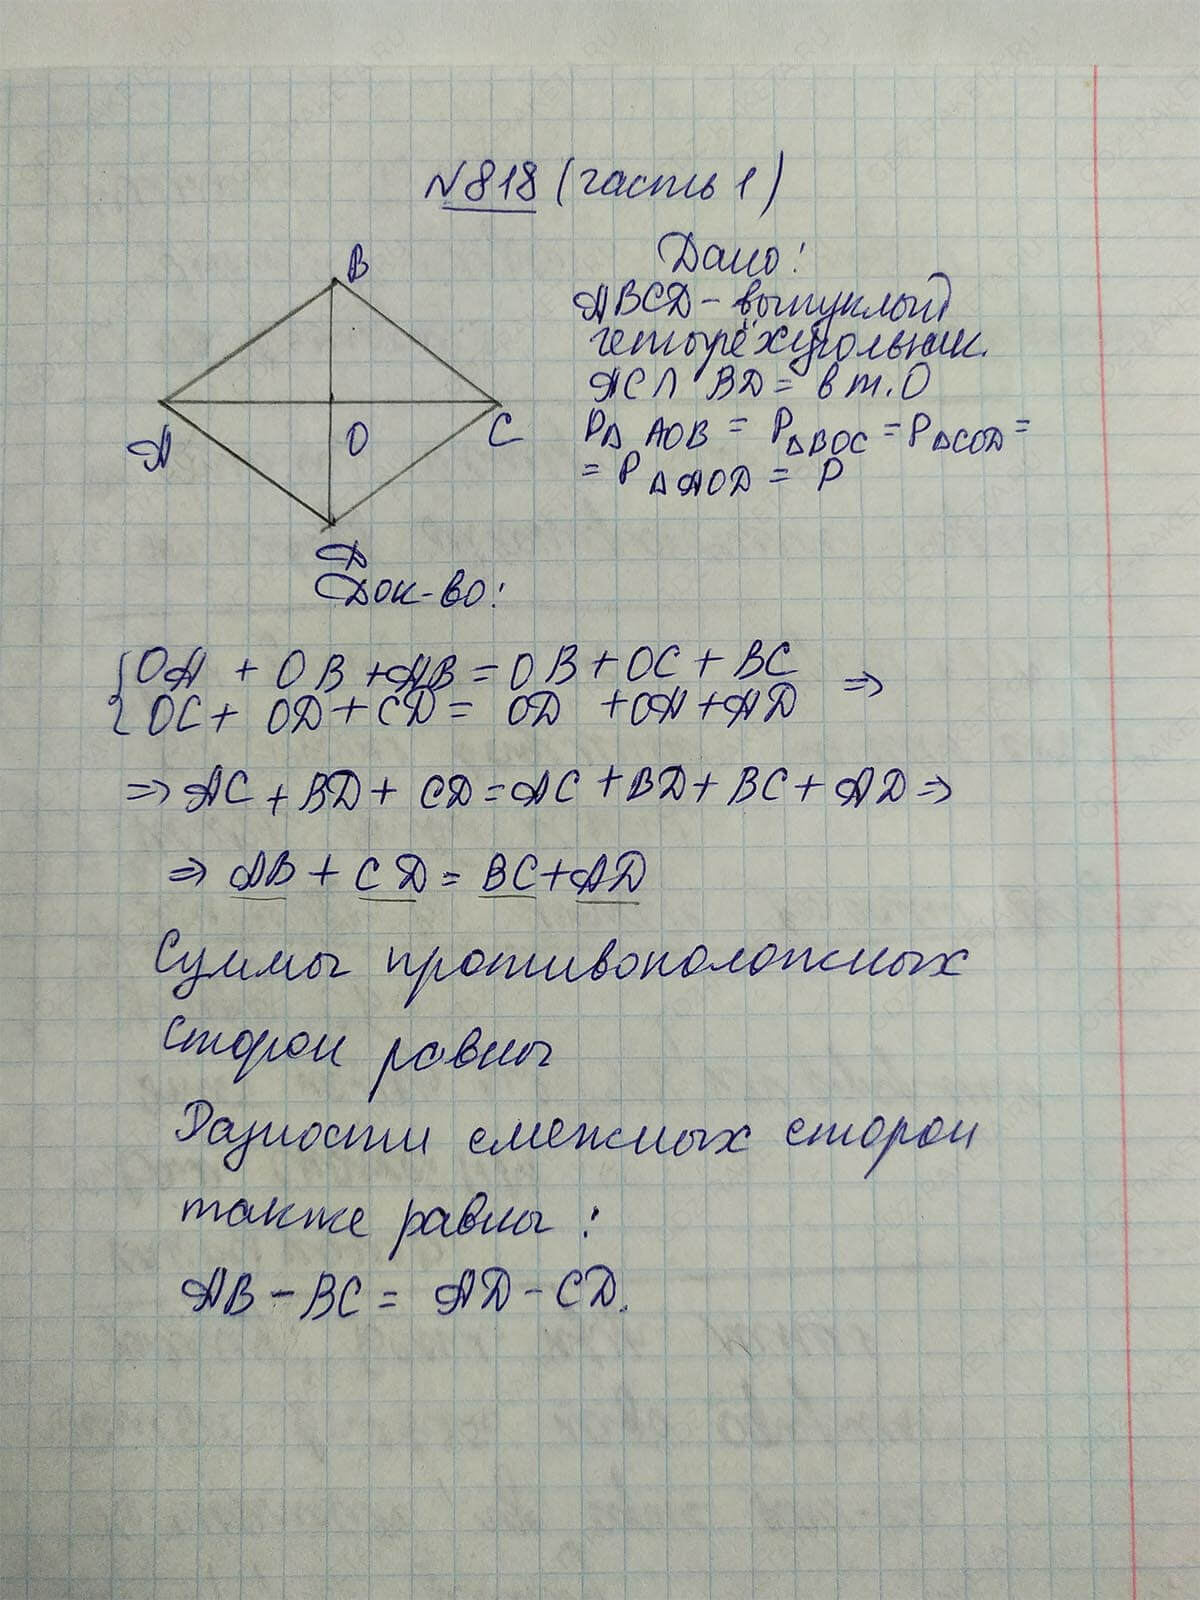 №818 (часть 1)
Дано:
ABCD – выпуклый
четырёхугольник.
AC ∩ BD = в т. O
P△ AOB = P△BOC = P△COD =
= P△AOD = P
B
A
O
C
D
Док-во:
{OA + OB + AB = OB + OC + BC
{OC + OD + CD = OD + OA + AD ⇒
⇒ AC + BD + CD = AC + BD + BC + AD ⇒
⇒ AB + CD = BC + AD
Суммы противоположных
сторон равны
Разности смежных сторон
также равны:
AB – BC = AD – CD.